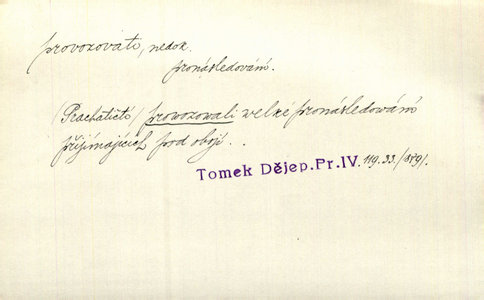 provozovati, nedok.
pronásledování.
(Prachatičtí) prowozowali welké pronásledování
přijímajících pod obojí...
Tomek Dějep. Pr. IV. 119. 33. /1879/.